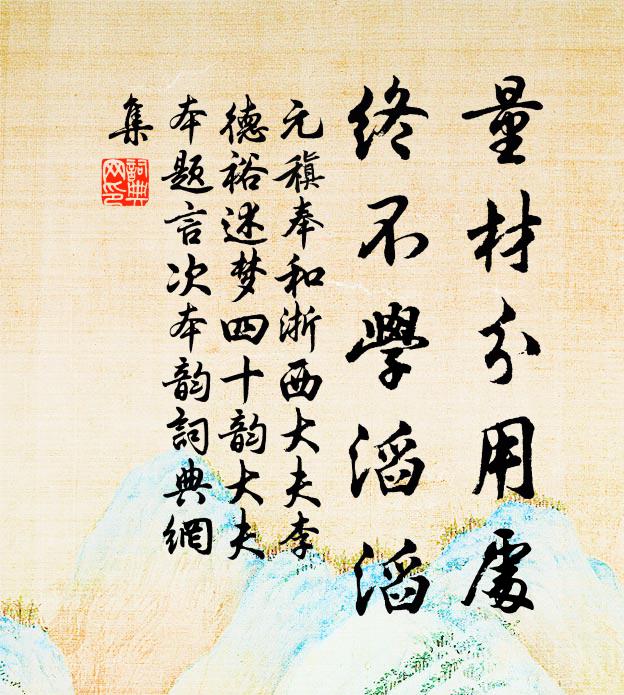 量材分用處
終不學滔滔
元稹奉和浙西大夫李
德裕述梦四十韵大夫
本题言次本韵詞典網
集
詞典網印